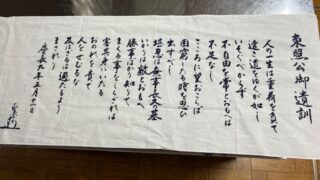 東照公御遺訓
人の一生は重荷を負て
遠き道をゆくが如し
いそぐべからず
不自由を常とおもへば
不足なし
こころに望おこらば
困窮したる時を思ひ
出すべし
堪忍は無事長久の基
いかりは敵とおもへ
勝事ばかり知りて
まくる事をしらざれば
害其身にいたる
おのれを責て
人をせむるな
及ばざるは過たるより
まされり